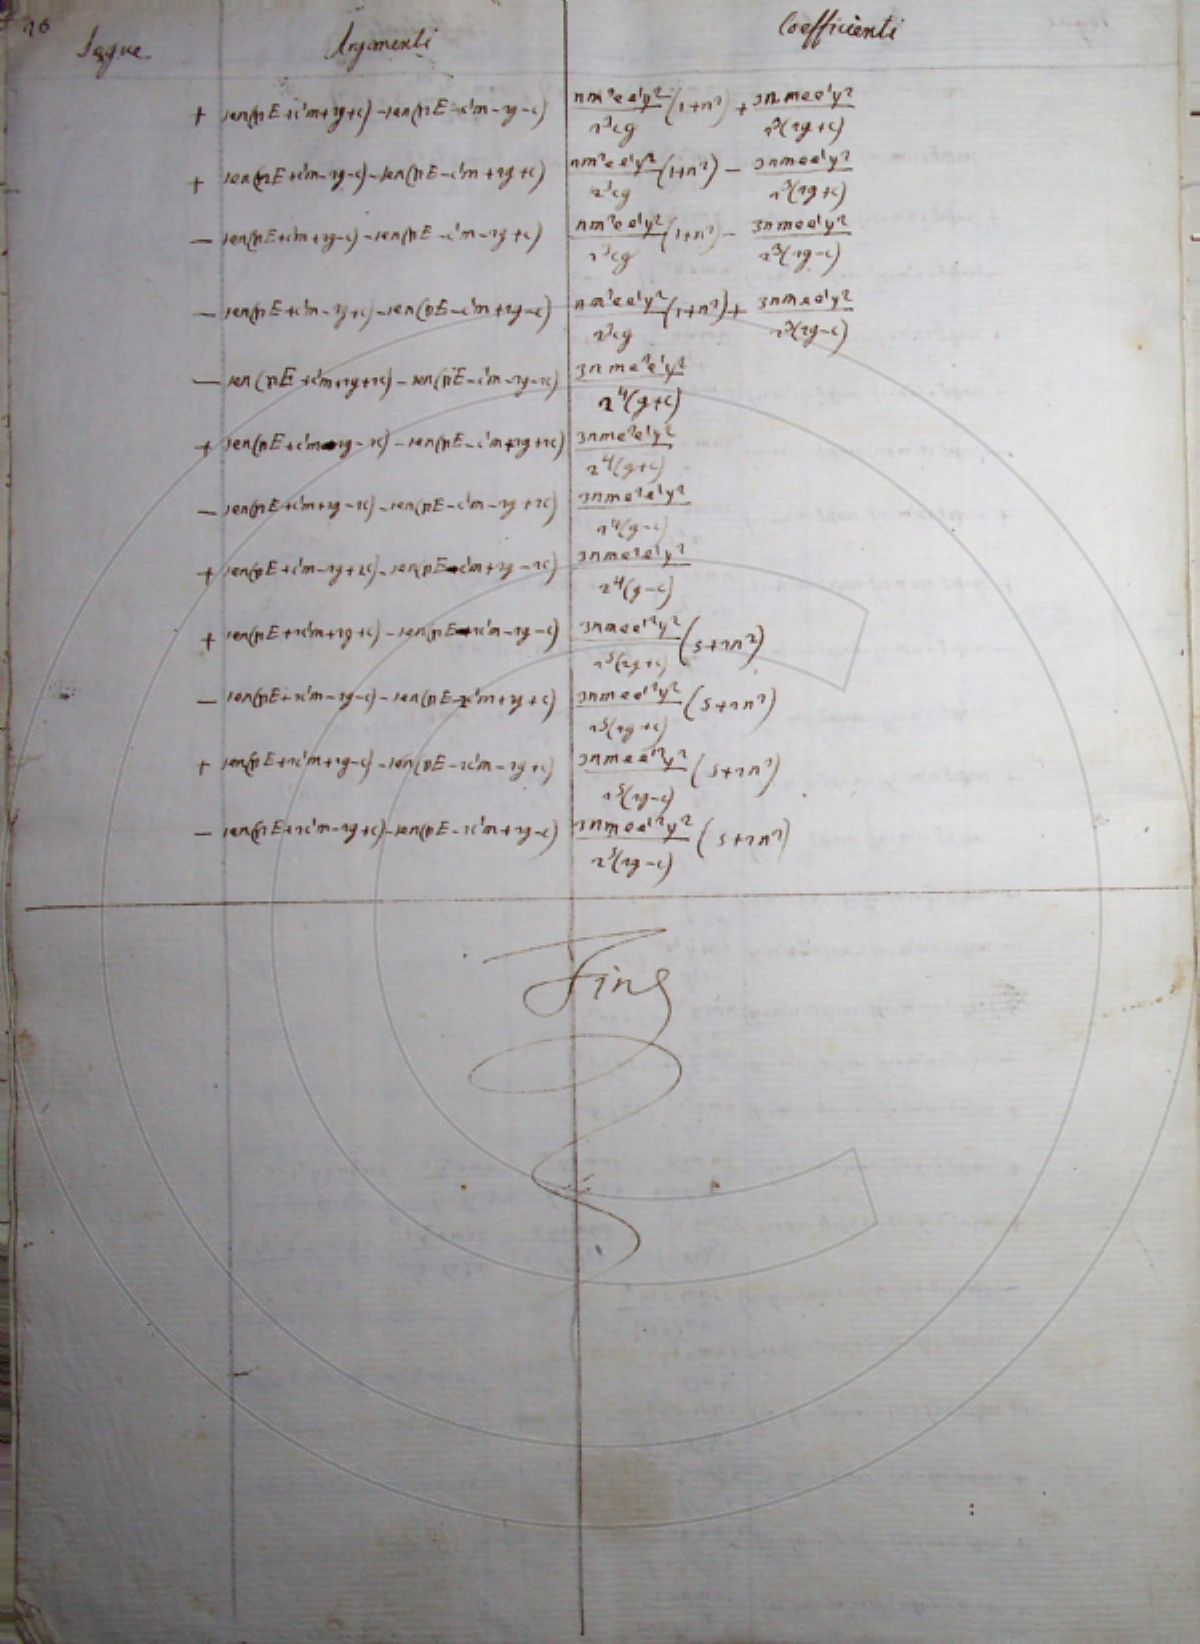 26
Segue Argomenti Coefficienti
+ sen(nE+c'm+2g+c)-sen(nE-c'm-2g-c) nm²ee'y²/2³cg (1+n²) + 3nmee'y²/2³(2g+c)
+ sen(nE+c'm-2g-c)-sen(nE-c'm+2g+c) nm²ee'y²/2³cg (1+n²) - 3nmee'y²/2³(2g+c)
- sen(nE+c'm+2g-c)-sen(nE-c'm-2g+c) nm²ee'y²/2³cg (1+n²) - 3nmee'y²/2³(2g-c)
- sen(nE+c'm-2g+c)-sen(nE-c'm+2g-c) nm²ee'y²/2³cg (1+n²) + 3nmee'y²/2³(2g-c)
- sen(nE+c'm+2g+2c)-sen(nE-c'm-2g-2c) 3nme²e'y²/2⁴(g+c)
+ sen(nE+c'm-2g-2c)-sen(nE-c'm+2g+2c) 3nme²e'y²/2⁴(g+c)
- sen(nE+c'm+2g-2c)-sen(nE-c'm-2g+2c) 3nme²e'y²/2⁴(g-c)
+ sen(nE+c'm-2g+2c)-sen(nE-c'm+2g-2c) 3nme²e'y²/2⁴(g-c)
+ sen(nE+2c'm+2g+c)-sen(nE-2c'm-2g-c) 3nmee'²y²/2⁵(2g+c) (5+2n²)
- sen(nE+2c'm-2g-c)-sen(nE-2c'm+2g+c) 3nmee'²y²/2⁵(2g+c) (5+2n²)
+ sen(nE+2c'm+2g-c)-sen(nE-2c'm-2g+c) 3nmee'²y²/2⁵(2g-c) (5+2n²)
- sen(nE+2c'm-2g+c)-sen(nE-2c'm+2g-c) 3nmee'²y²/2⁵(2g-c) (5+2n²)
Fine